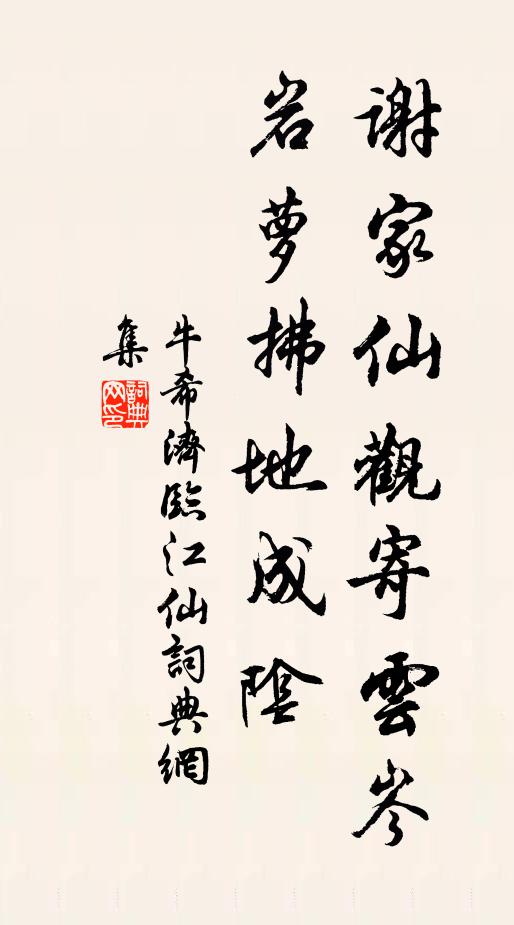 謝家仙觀寄雲岑
岩萝拂地成陰
牛希濟臨江仙詞典網
集
詞典網印